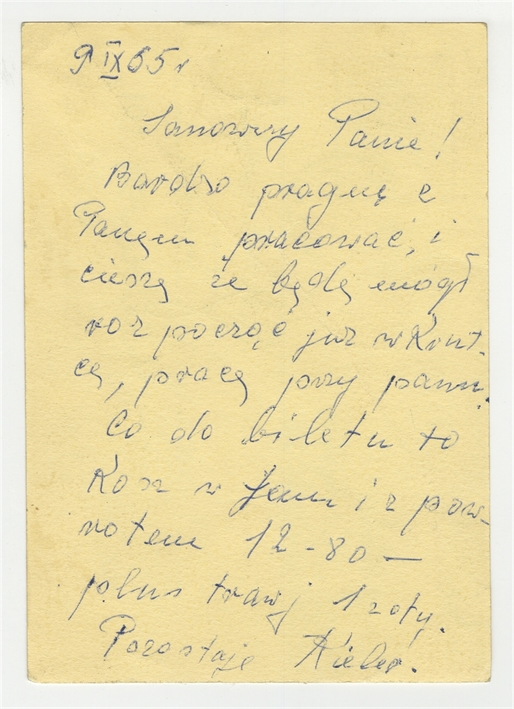 9 IX 65 r
Sanowny Panie!
Bardzo pragnę z
Panem pracować, i
cieszę że będę mógł
rozpocząć już w Kont-
cą, pracę przy panu.
Co do biletu to
w i z pow-
rotem 12-80 —
plus trawj 1 zoty.
Pozostaję